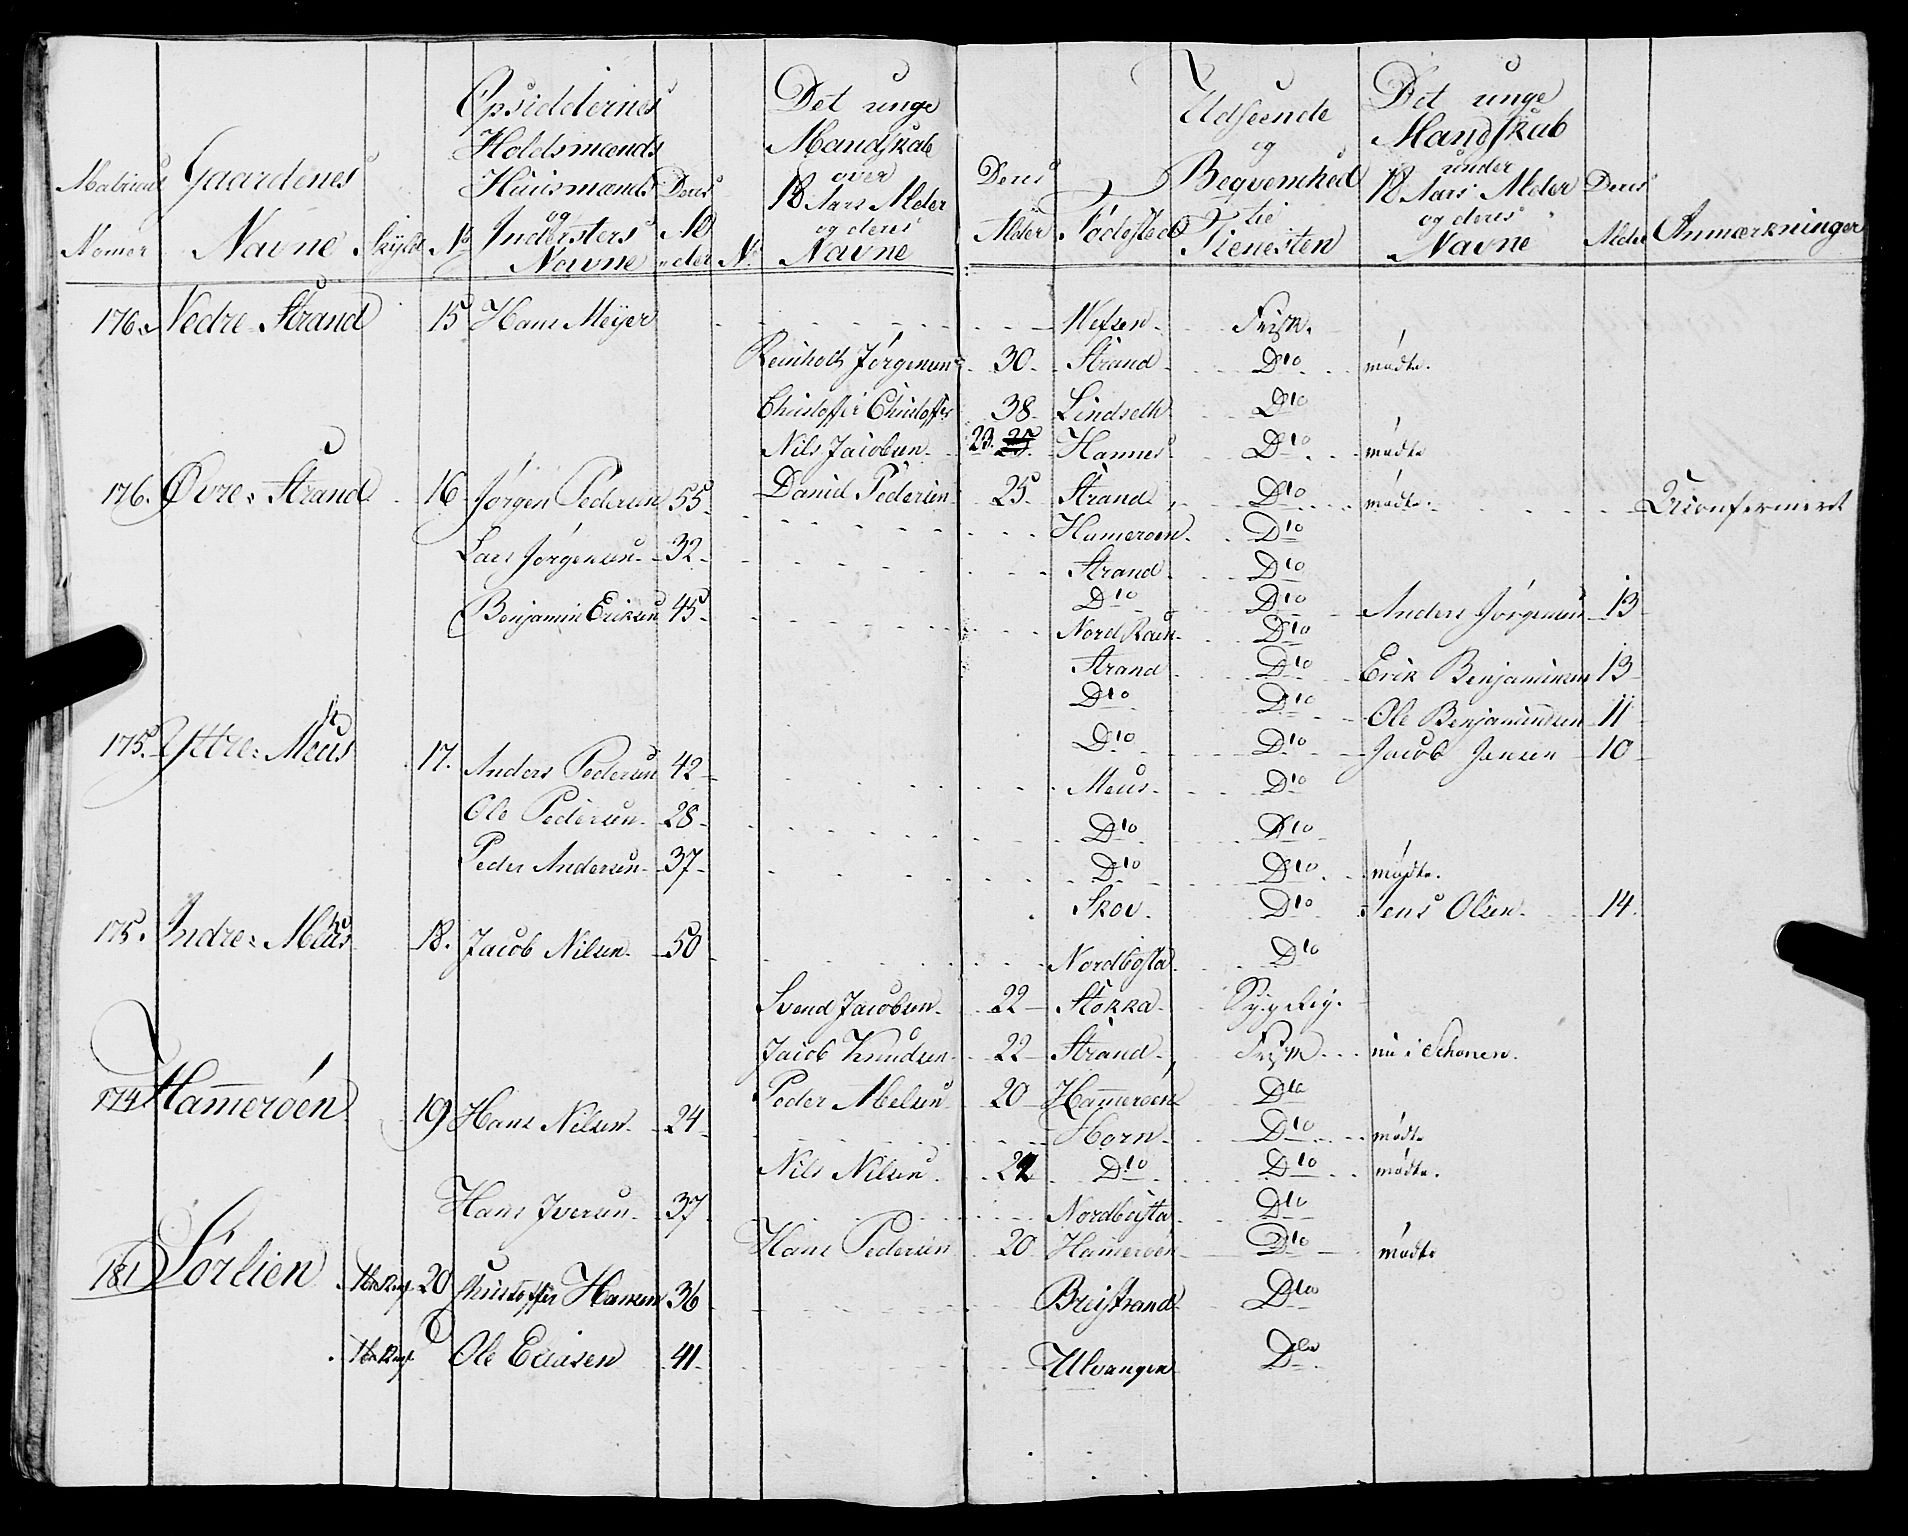 Matricul Nomer
Gaardenes Navne
Skyld
No
Opsiddernes Holdsmænds Huusmænds og Inderster's Navne
Deres Alder
No
Det unge Mandskab over 18 Aars Alder og deres Navne
Deres Alder
Fødested
Udseende og Beqvemhed til Tienesten
Det unge Mandskab under 18 Aars Alder og deres Navne
Deres Alder
Anmærkninger
176. Nedre Strand 15 Hans Meÿer Wefsen Frisk.
Reinholt Jørgensen 30. Strand Dto mødte.
Christoffer Christoffer 38. Lindseth Dto
Nils Jacobsen 23. 25. Hannes Dto mødte
176. Øvre Strand 16 Jørgen Pedersen 55 Daniel Pedersen 25 Strand Dto mødte. Uconfermiret
Hameroen Dto
Lars Jørgensen 32 Strand Dto
Dto Dto Anders Jørgensen 13
Benjamin Eriksen 45 Nord Dto
Strand Dto Erik Benjaminsen 13
Dto Dto Ole Benjaminsen 11
175. Yttre Meus 17. Dto Dto Jacob Jansen 10
Anders Pedersen 42 Meus Dto
Ole Pedersen 28 Dto Dto
Peder Andersen 37 Dto Dto mødte.
Skov Dto Jens Olsen 14.
175. Indre Meus 18. Jacob Nilsen 50 Nordbosta Dto
Svend Jacobsen 22 Stokka Sygelig.
Jacob Knudsen 22 Strand Frisk nu i Schonen.
174 Hammerøen Peder Nielsen 20 Hammerøen Dto
19 Hans Nilsen 24 Horn Dto mødte
Nils Nilsen 22 Dto Dto mødte.
Hans Iversen 37 Nordbosta Dto
Hans Pedersen 20 Hammerøen Dto mødte
181 Sørlien 20 Christoffer Hansen 36 Breistrand Dto
Ole Ericsen 41 Ulvangen Dto